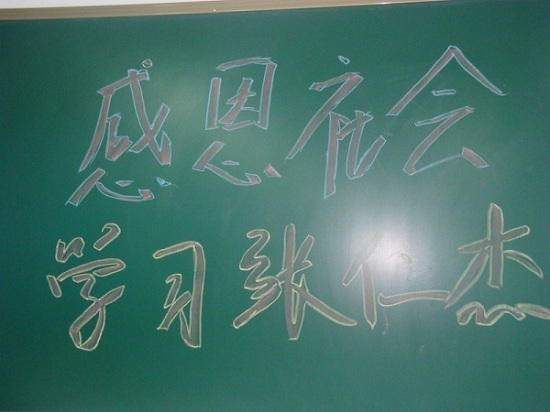 感恩社会
学习张仁杰